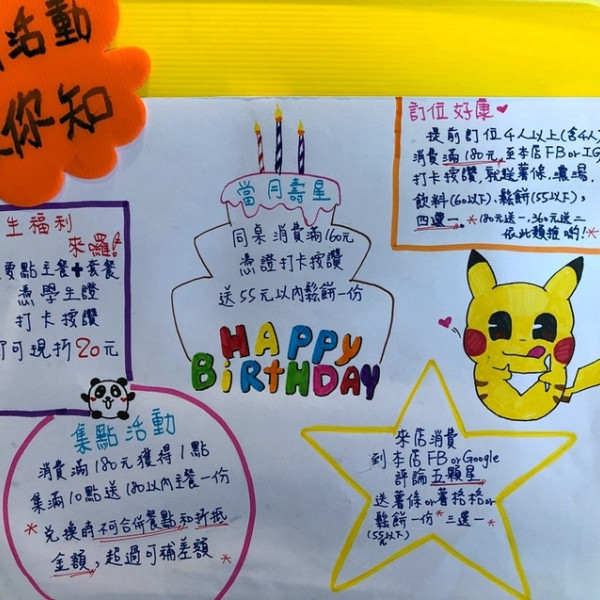 活動
你知
訂位好康
提前訂位4人以上(含4人)
消費滿180元,至本店FB or IG
打卡按讚,就送薯條、濃湯、
飲料(60以下)、鬆餅(55以下),
四選一。*180元送一,360元送二
依此類推喲!*
當月壽星
同桌消費滿160元
憑證打卡按讚
送55元以內鬆餅一份
HAPPY
BiRTHDAY
生福利
來囉!
要點主餐+套餐
憑學生證
打卡按讚
可現折20元
集點活動
消費滿180元獲得1點
集滿10點送180以內主餐一份
*兌換時不合併餐點和折抵
金額,超過可補差額*
來店消費
到本店FB or Google
評論五顆星
送薯條or薯格格or
鬆餅一份*三選一*
(55元以下)